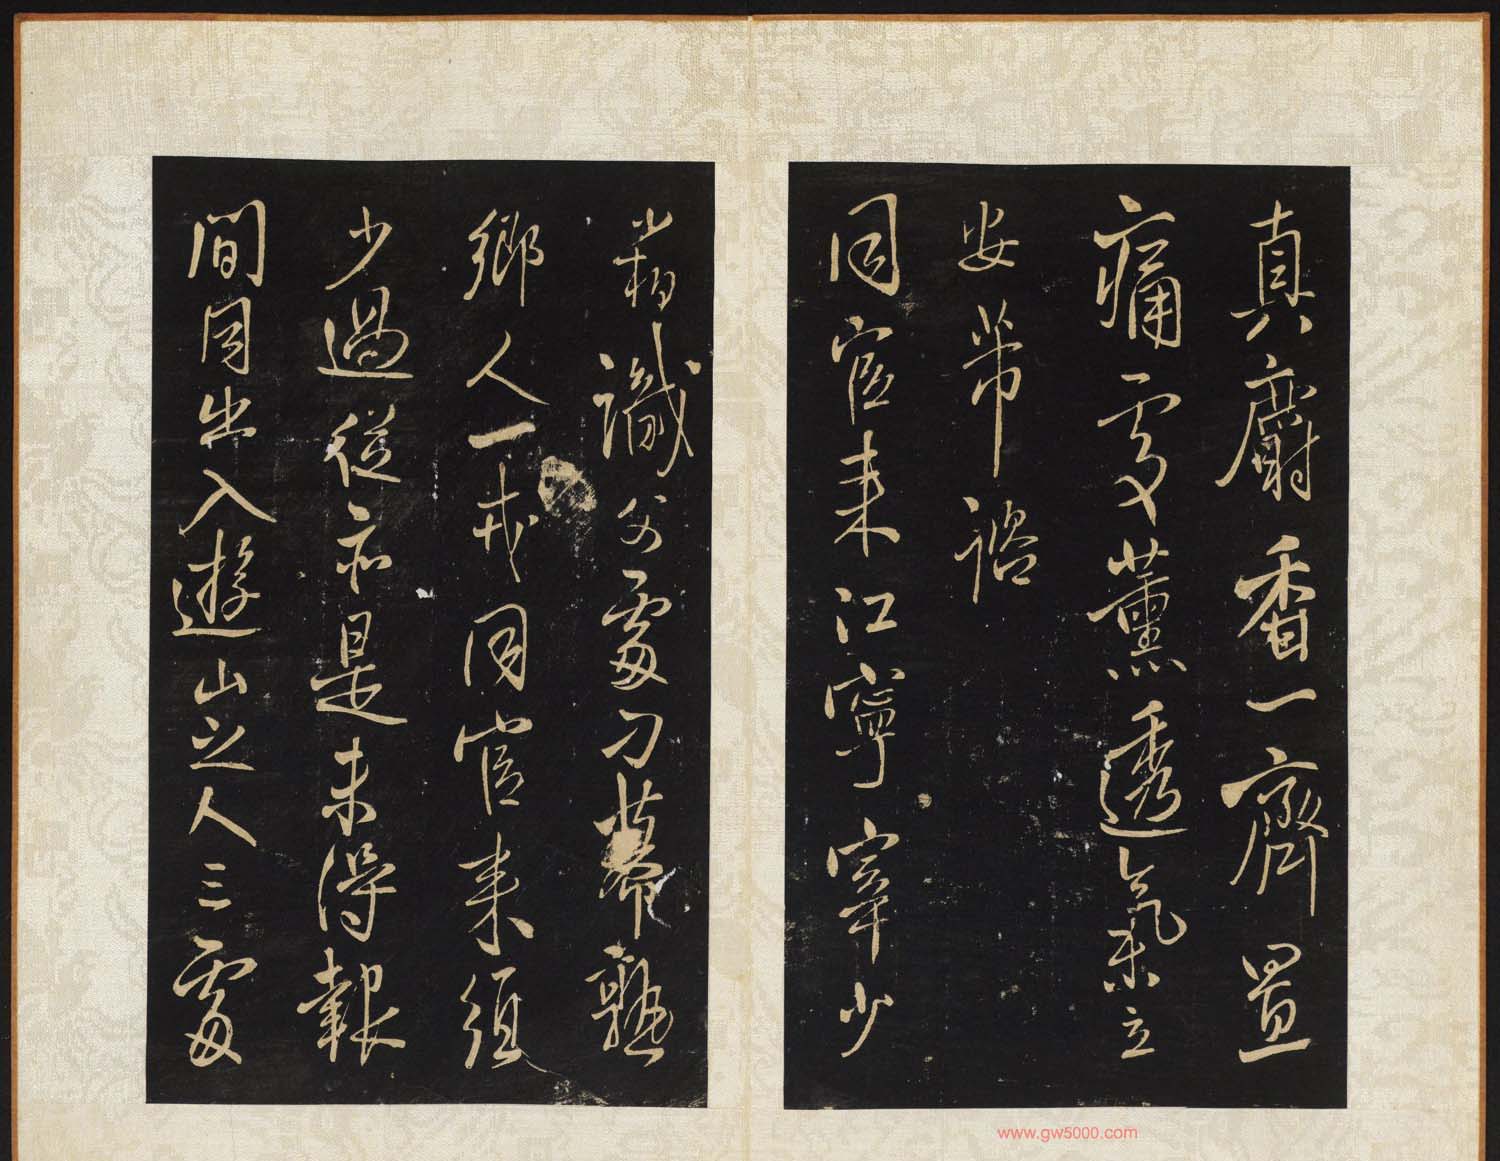 真麝香一齊置
痛處薰透氣味立
安芾諮
同官来江寧宰少
識父處熟
鄉人一同官来須
少過從亦是未得報
間同出入遊山之人三處
www.gw5000.com